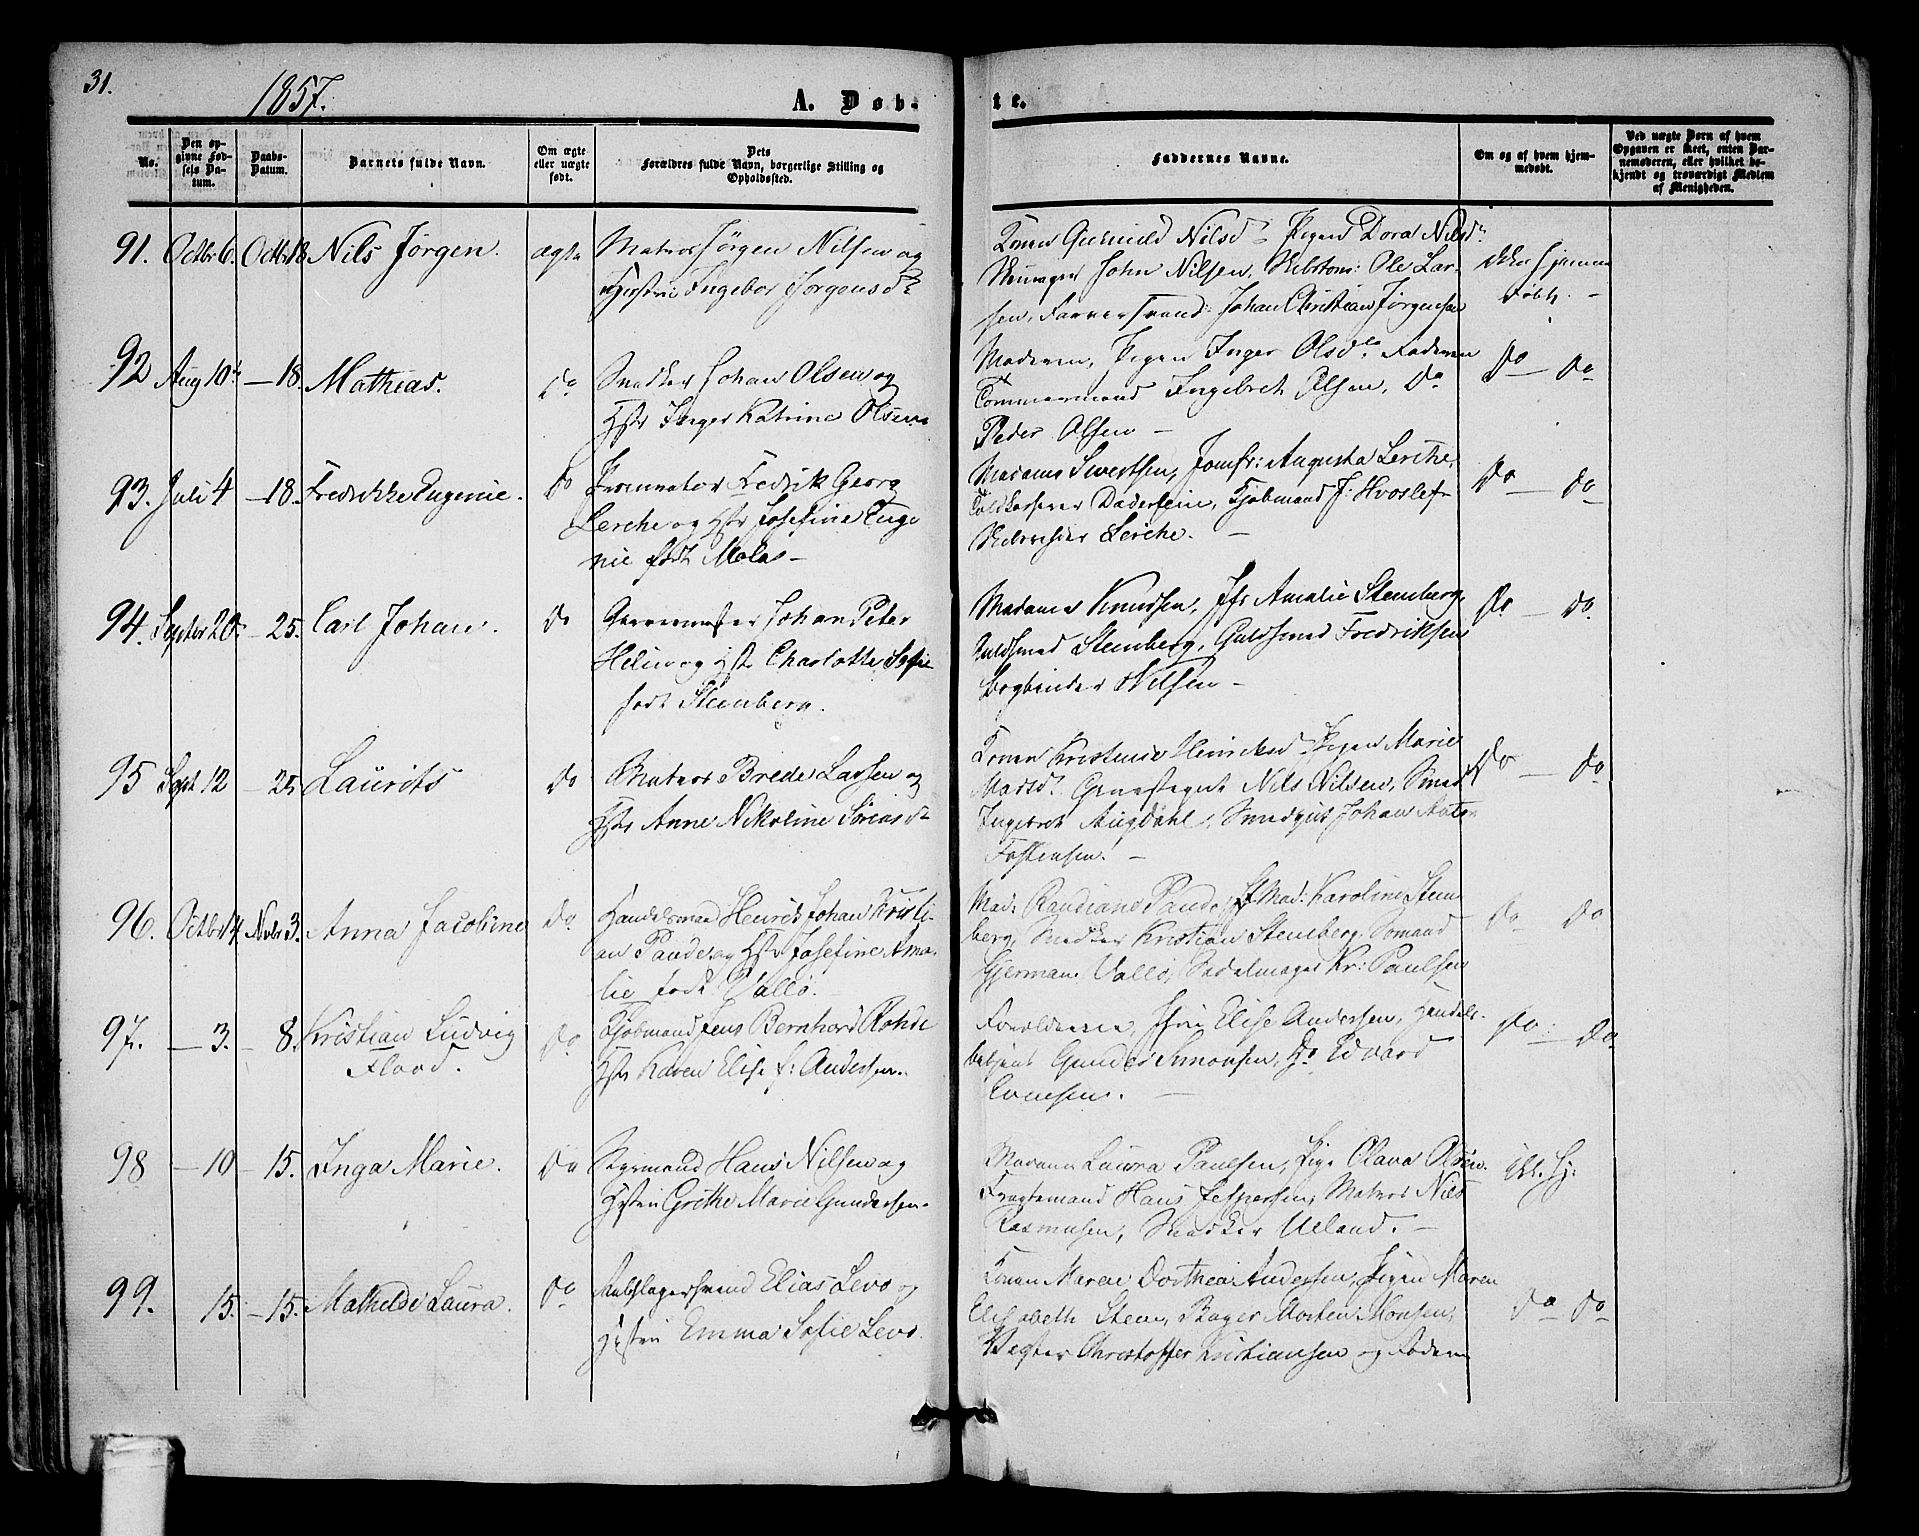 31.
1857.
A. Døb-
te.
No.
Den opgivne Fødsels Datum.
Daabs-Datum.
Barnets fulde Navn.
Om ægte eller uægte født.
Dets Forældres fulde Navn, borgerlige Stilling og Opholdssted.
Faddernes Navne.
Om og af hvem hjemmedøbt.
Ved uægte Børn af hvem Opgaven er skeet, enten Barnemoderen, eller hvilket bekjendt og troværdigt Medlem af Menigheden.
91. Octbr 6. Octbr 18 Nils Jørgen. ægte
Matros Jørgen Nilsen og
Hustru Ingebor Jørgensd
Konen Gunnild Nilsd Pigen Dora Nilsd
John Nilsen, Ole Lar-
sen, Farversvend: Johan Christian Jørgensen
ikke hjemme
døbt. -
92 Aug 10 - 18. Mathias. Do
Snedker Johan Olsen og
Hstr Inger Katrine Olsen
Moderen, Pigen Inger Olsd Faderen
Tømmermand Ingebret Olsen, Do
Peder Olsen -
Do - Do
93. Juli 4 - 18. Fredrikke Eugenie. Do
Procurator Fredrik Georg
Lerche og Hstr Josefine Euge
nie født
Madame Sivertsen, Jomfr: Augusta Lerche,
Toldkasserer Kjøbmand J: Hvoslef
Lerche. -
Do - Do
94. Septbr 20. - 25. Carl Johan. Do
Johan Peter
og Hst Charlotte Sofie
født Stenberg.
Madame Knudsen, Jfr Amalie Stenberg,
Guldsmed Stenberg, Guldsmed Fredriksen
Bogbinder Nilsen -
Do - Do
95 Sept 12 - 25 Laurits Do
Matros Brede Larsen og
Hstr Anne Nikoline Sørensd
Konen Kristense Henriksd Pigen Marie
Madsd. Nils Nilsen, Smed
Ingebret Augdahl, Johan Anto
-
Do - Do
96. Octbr 14. Novbr 3. Anna Jacobine Do.
Handelsmand Henrik Johan Kristi-
an Pande og Hstr Josefine Ama-
lie født Vallø.
Mad: Randiane Pande, Mad: Karoline Sten
berg, Snedker Kristian Stenberg, Sømand
Gjerman Vallø, Sadelmager Kr: Paulsen
Do Do
97. - 3. - 8. Kristian Ludvig
Flood. Do
Kjøbmand Jens Bernhard Rohde
Hstr Karen Elise f: Andersen.
Forældrene, Elise Andersen, Handels-
betjent Gunder Simonsen, Do Edvard
Evensen. -
Do - Do
98 - 10 - 15. Inga Marie. Do
Styrmand Hans Nilsen og
Hstru Grethe Marie Gundersen.
Madame Laura Paulsen, Pige Olava Olsen.
Fragtemand Hans Jespersen, Matros Nils
Rasmusen, Snedker Ueland. -
Ikk. Hj:
99. 15. - 15. Mathelde Laura. Do
Elias Levo og
Hustru Emma Sofie Levo.
Konen Maren Dorthea Andersen, Pigen Maren
Elisabeth Steen, Bager Morten Monsen,
Vægter Christoffer Kristiansen og Faderen
Do - Do